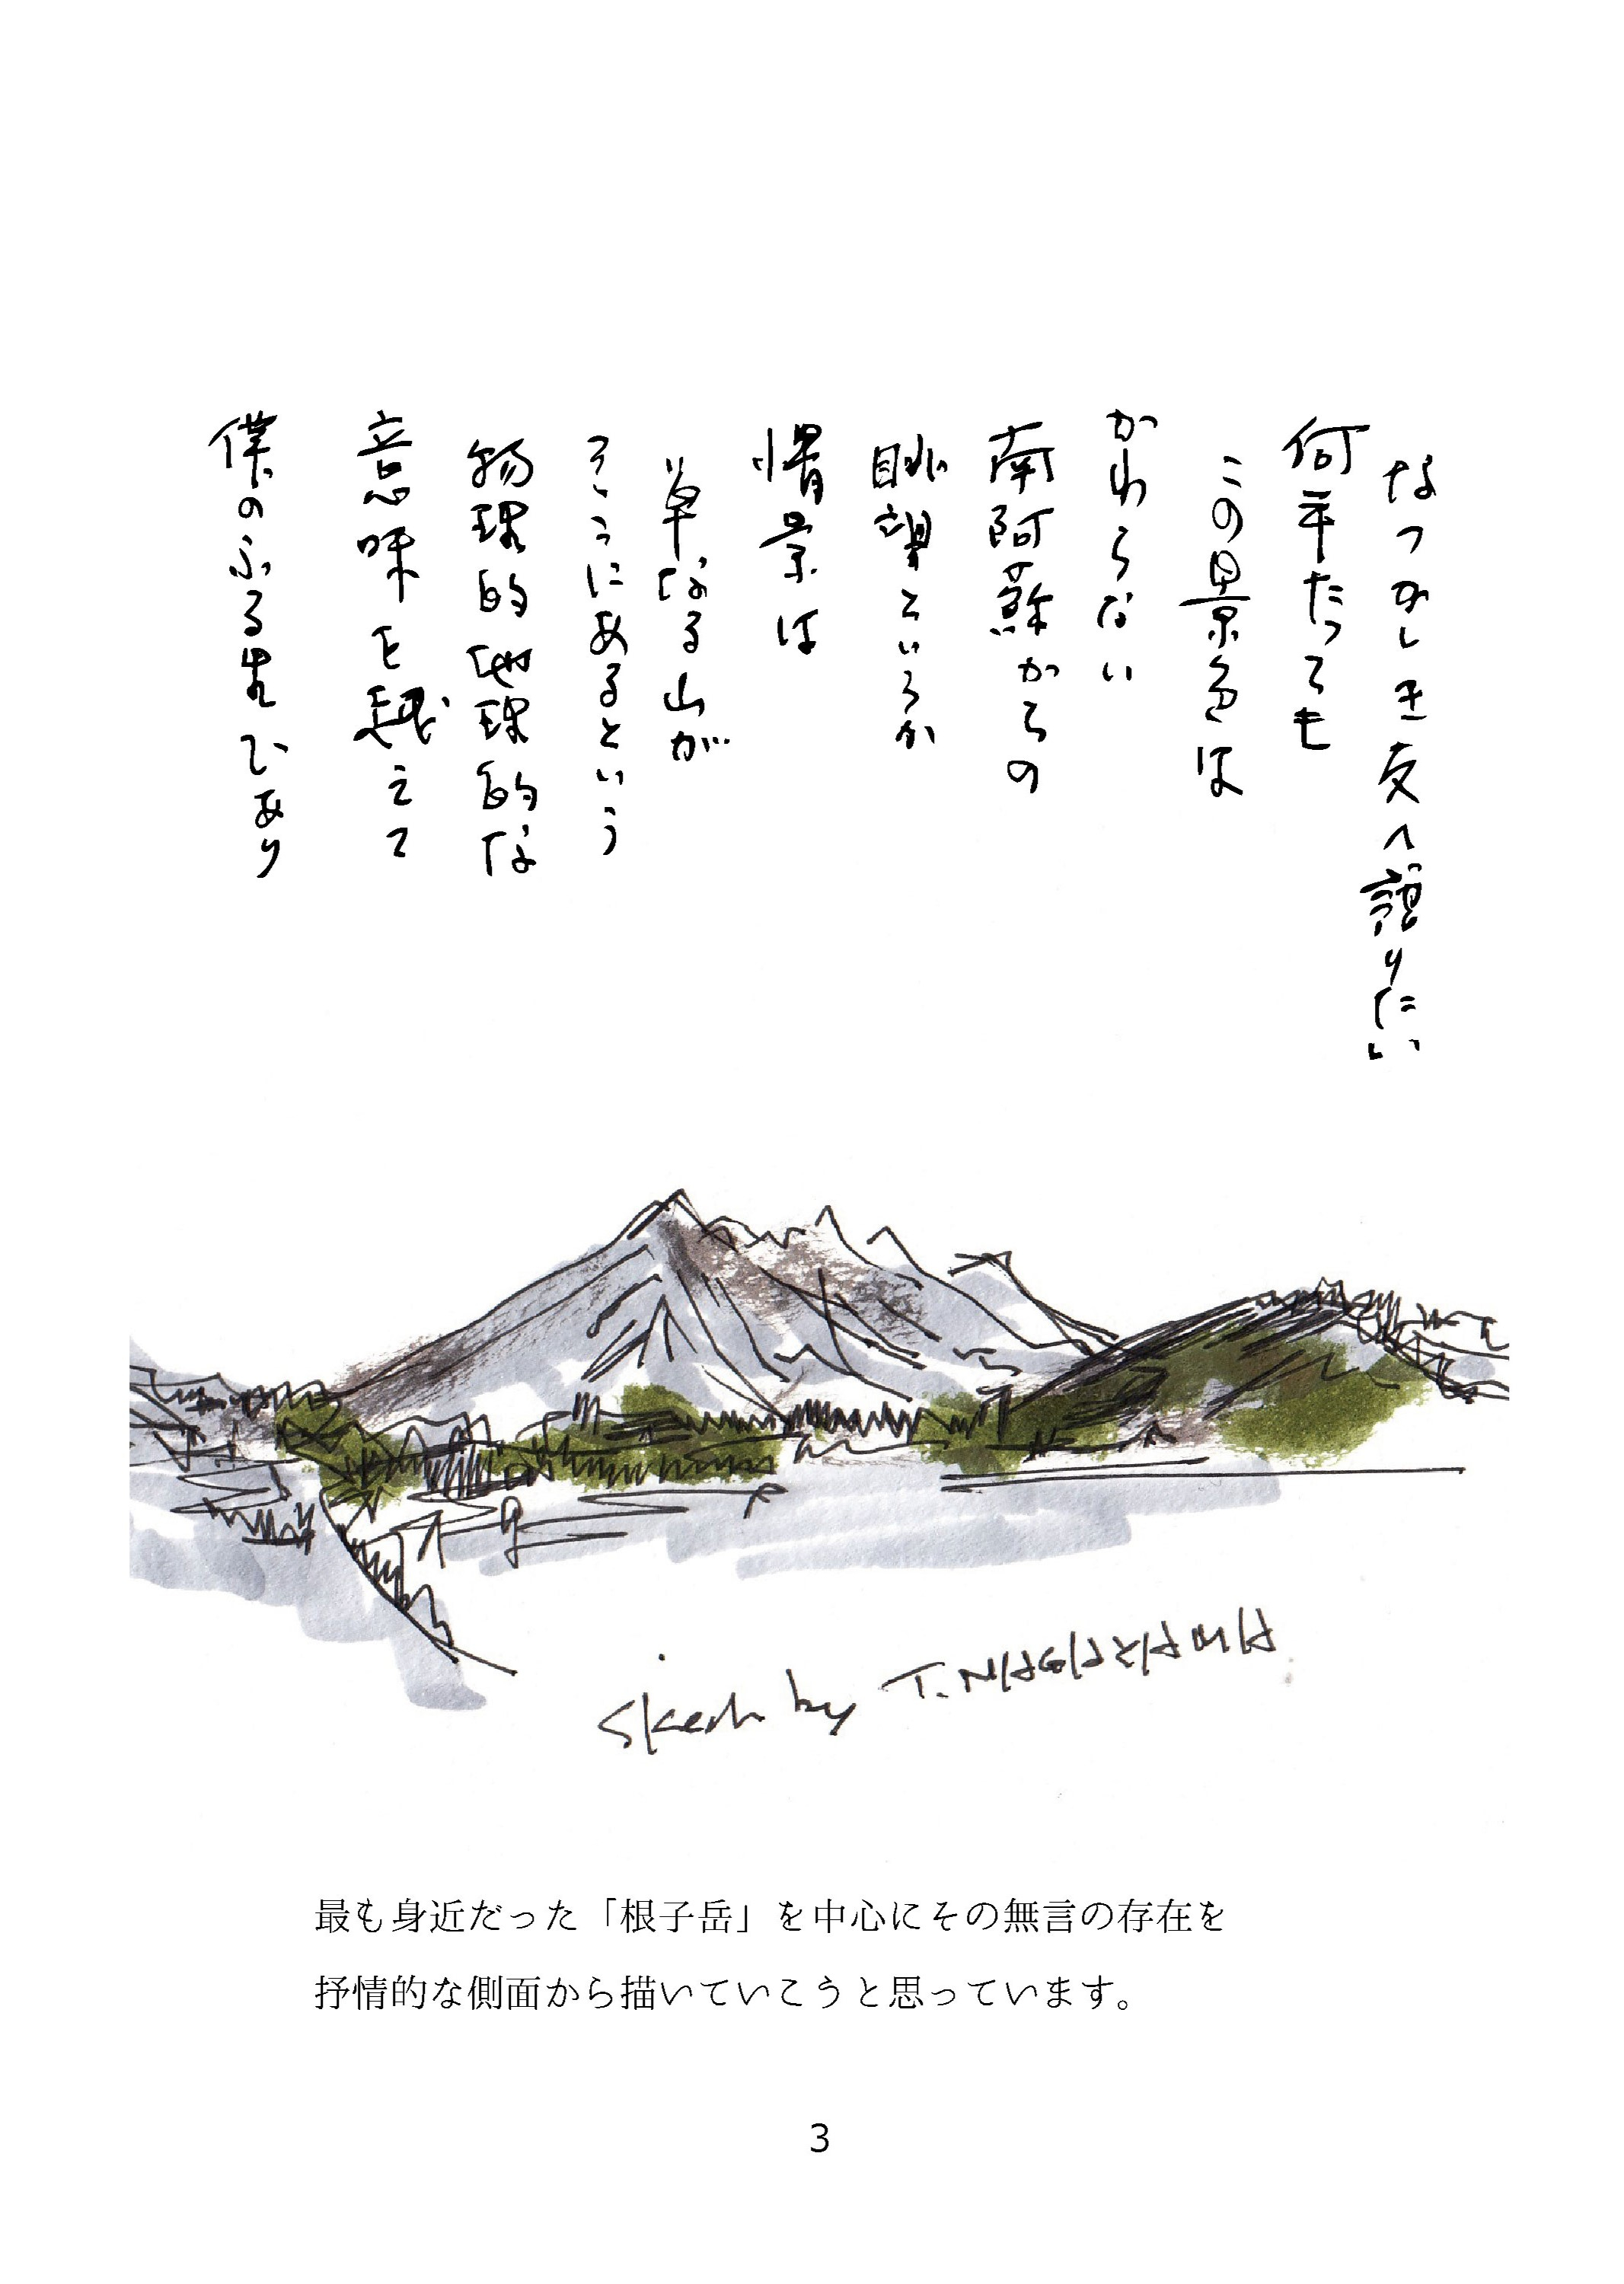 なつかしき友へ語りたい
何年たっても
この景色は
かわらない
南阿蘇からの
眺望というか
情景は
単なる山が
そこにあるという
物理的地理的な
意味を越えて
僕のふる里であり
Skech by T.NAGAYAMA
最も身近だった「根子岳」を中心にその無言の存在を
抒情的な側面から描いていこうと思っています。
3